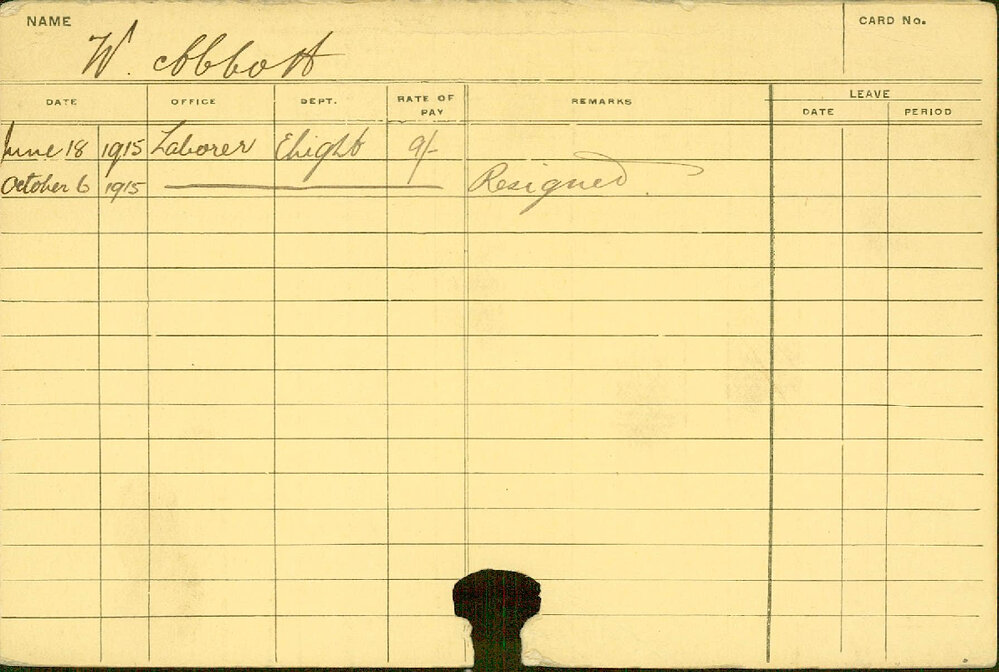 NAME
CARD No.
W. Abbott
DATE OFFICE DEPT. RATE OF PAY REMARKS LEAVE
DATE PERIOD
June 18 1915 Laborer E.Light 9/-
October 6 1915 Resigned.